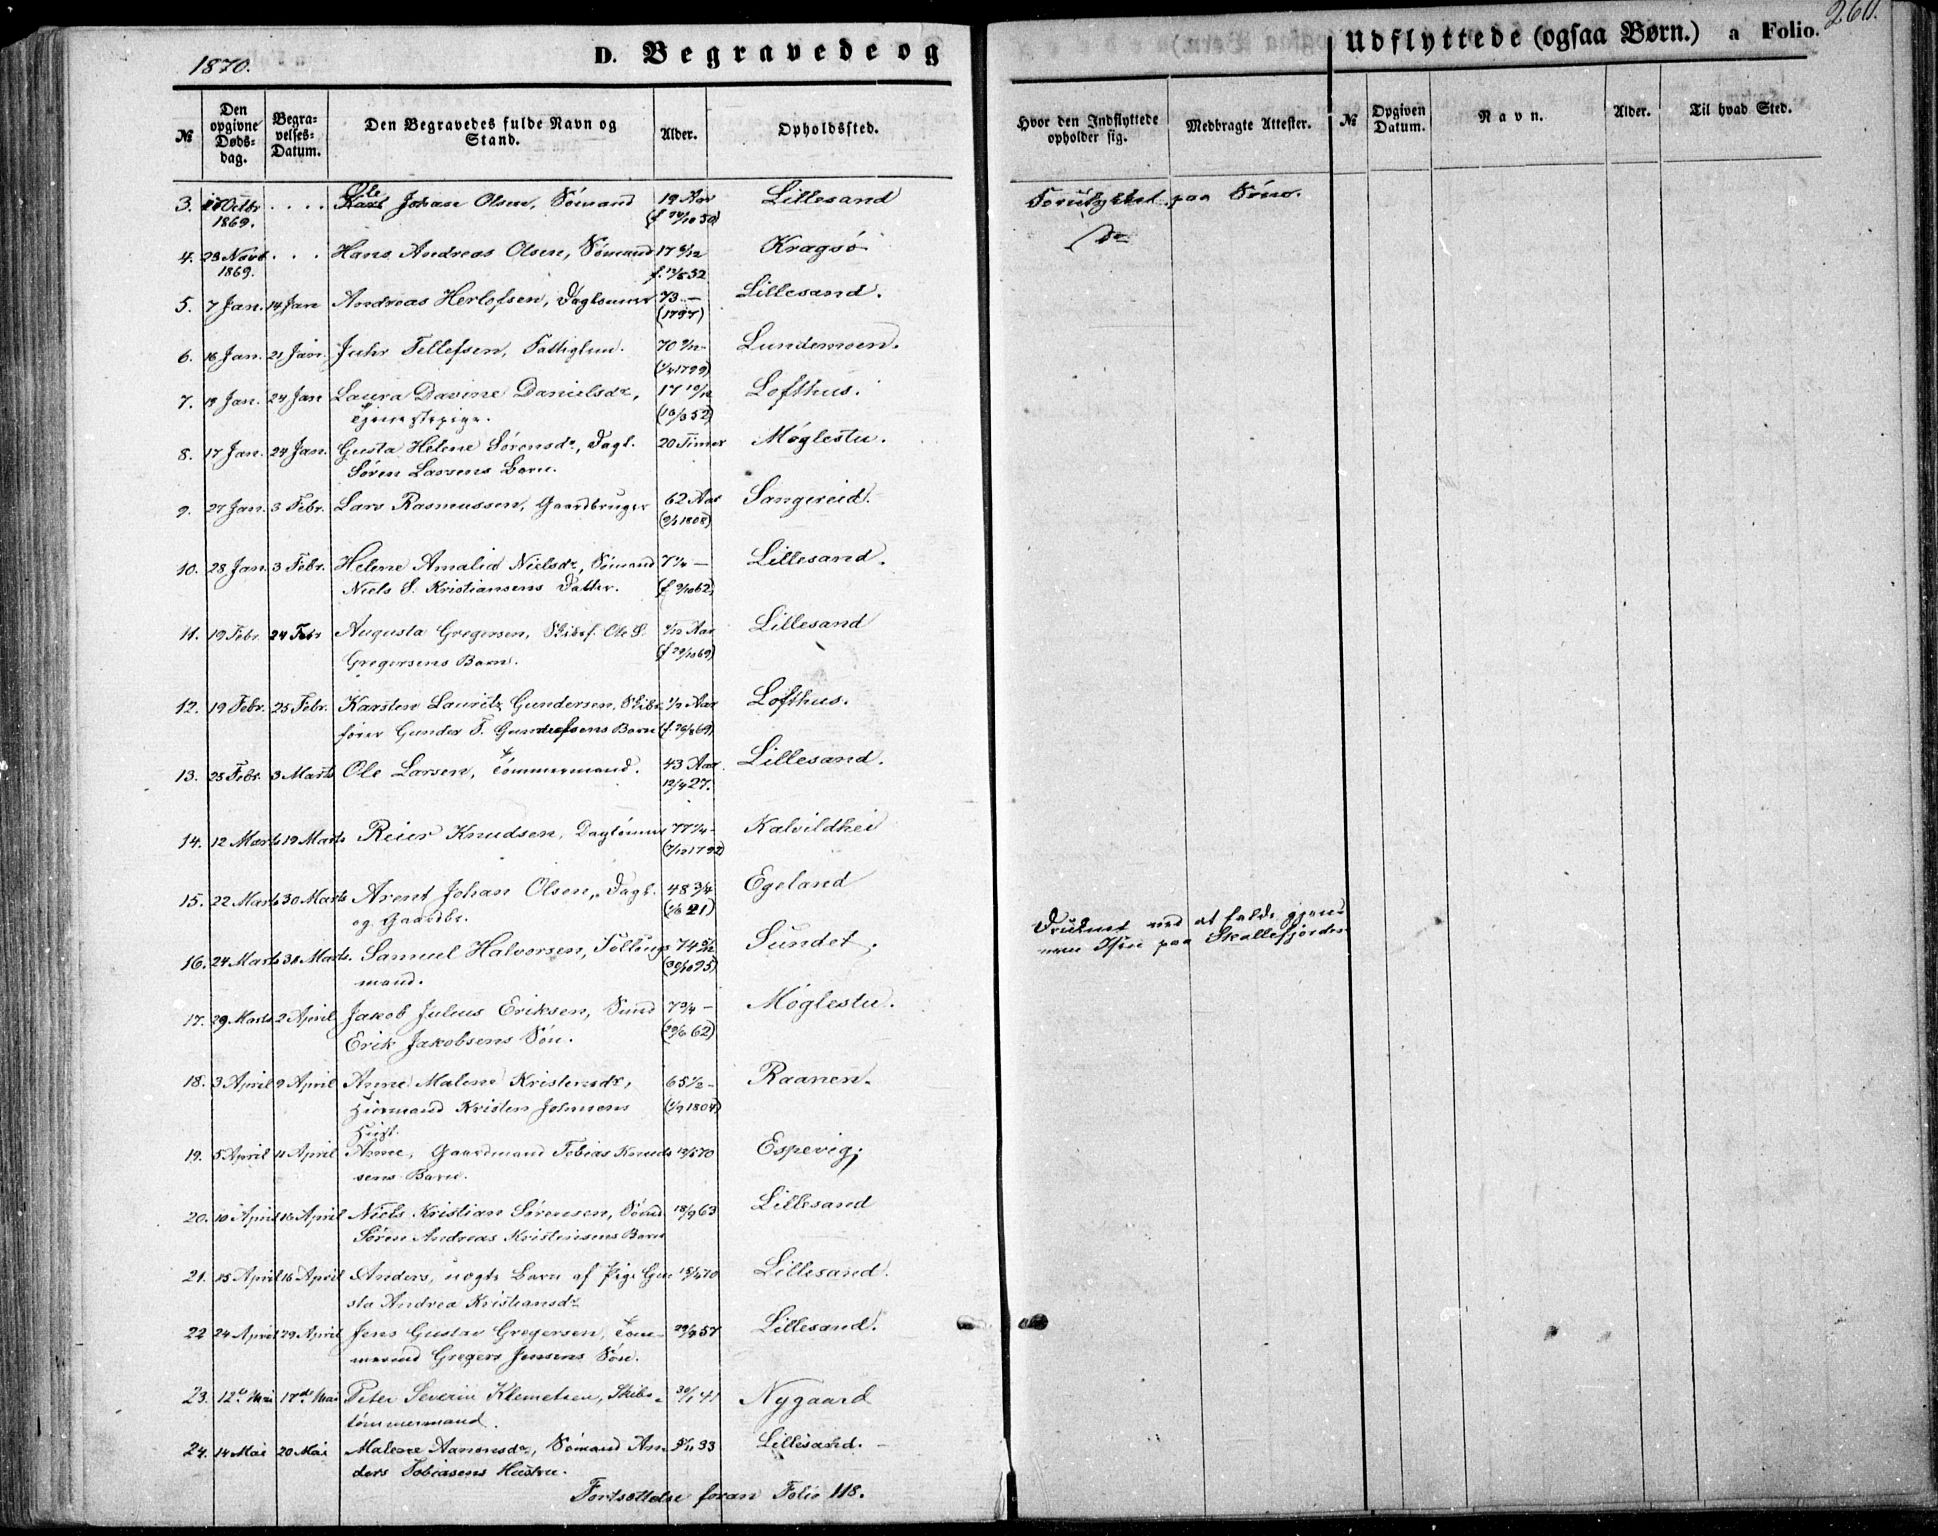 260.
1870.
D. Begravede og
Udflyttede (ogsaa Børn.) a Folio.
№ Den opgivne Døds-dag. Begra-velses-Datum. Den Begravedes fulde Navn og Stand. Alder. Opholdssted.
Hvor den Indflyttede opholder sig. Medbragte Attester. № Opgiven Datum. Navn. Alder. Til hvad Sted.
3. Octbr 1869. . . . . Ole Johan Olsen, Sömand 19 Aar Lillesand paa Söen.
4. 23 Novb 1869. . . . Hans Andreas Olsen, Sömand 17 Kragsö do
5. 7 Jan. 14 Jan Andreas Herlofsen, Daglönner 73 — (1797) Lillesand.
6. 16 Jan. 21 Jan. Juhr Tellefsen, Fattiglem. 70 Lundemoen.
7. 19 Jan. 24 Jan Laura Davine Danielsdr, 17 10/12 Lofthus.
Tjenestepige. (13/3 52)
8. 17 Jan. 24 Jan. Gusta Helene Sörensdr, Dagl. 20 Timer Möglestu.
Sören Larsens Barn.
9. 27 Jan. 3 Febr. Lars Rasmussen, Gaardbruger 62 Aar Sangereid.
10. 28 Jan. 3 Febr. Helene Amalia Nielsdr, Sömand 7 1/4 — Lillesand.
Niels S. Kristiansens Datter. (f 9/10 62)
11. 19 Febr. 24 Febr Augusta Gregersen, Skibsf. Ole S. Aar Lillesand
Gregersens Barn. (f 29/10 69)
12. 19 Febr. 25 Febr. Karsten Lauritz Gundersen, Skibs 1/2 Aar Lofthus.
förer Gunder T. Gundersens Barn (f. 26/8 69)
13. 25 Febr. 3 Marts Ole Larsen, Tömmermand. 43 Aar. Lillesand.
12/4 27.
14. 12 Marts 19 Marts Reier Knudsen, Daglönner 77 1/4 - Kalvildhei
15. 22 Marts 30 Marts Arent Johan Olsen, Dagl. 48 3/4 Egeland
og Gaardbr. 21)
16. 24 Marts 30 Marts. Samuel Halvorsen, Föllings 74 5/12 Sundet, Druknet ved at falde gjen-
mand. (30/10 95) nem Isen paa Skallefjorden
17. 29 Marts 2 April Jakob Julius Eriksen, Sund 7 3/4 — Möglestu.
Erik Jakobsens Sön. (29/6 62)
18. 3 April 9 April Anne Malene Kristensdr, 65 1/2 - Raanen.
Huusmand Kristen Johnsens 1804)
Hust.
19. 5 April 11 April Anne, Gaardmand Tobias Knud- 70 Espevig,
sens Barn.
20. 10 April 16 April Niels Kristian Sörensen, Sömd 18/9 63 Lillesand
Sören Andreas Kristensens Barn
21. 15 April 16 April Anders, uægte Barn af Pige Gu- 70 Lillesand.
sta Andrea Kristiansdr
22 24 April 29 April Jens Gustav Gregersen, Töm- 57 Lillesand.
mermd Gregers Jensens Sön.
23. 12te Mai 17de Mai Peter Severin Klemetsen, Skibs- 30/1 41 Nygaard
tömmermand.
24. 14 Mai 20 Mai Malene Aanonsdr, Sömand An- 33 Lillesand. -
ders Tobiasens Hustru.
Fortsættelse foran Folio 118.